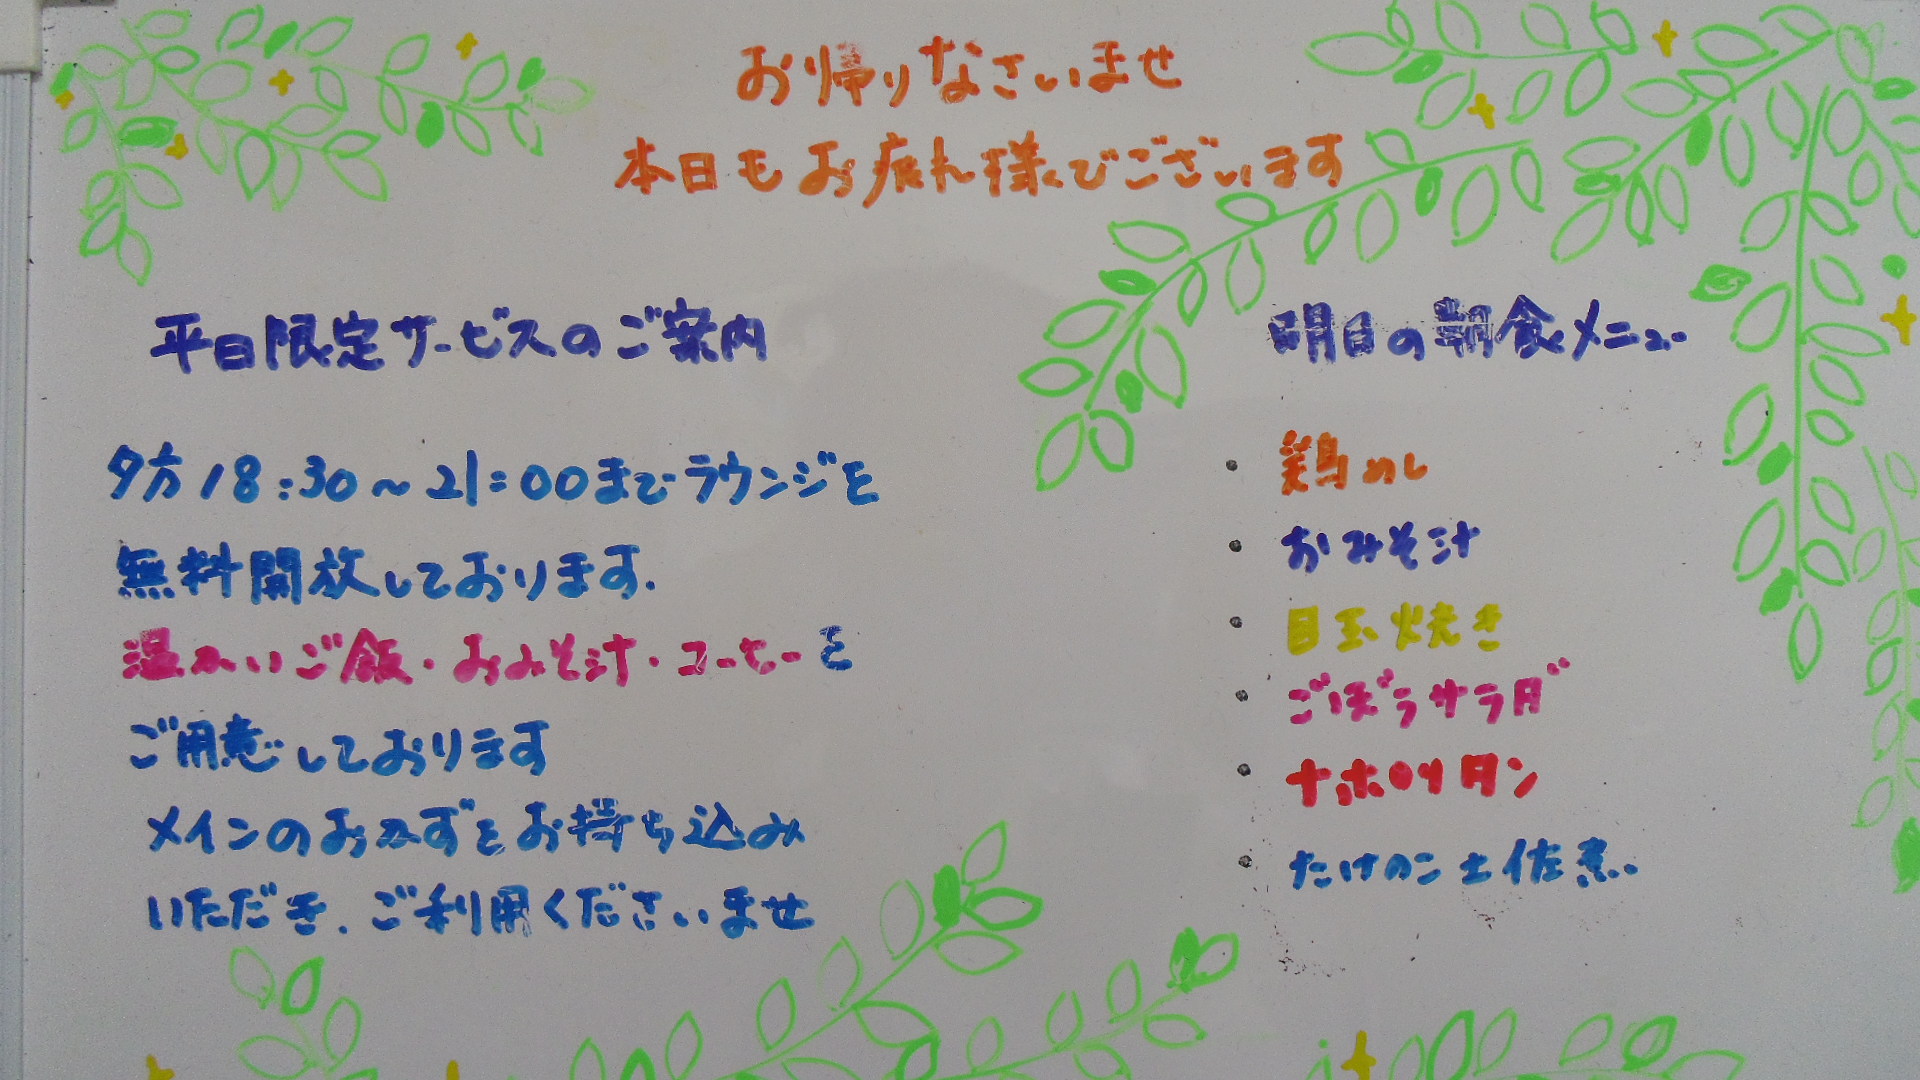 お帰りなさいませ
本日もお疲れ様でございます
平日限定サービスのご案内
夕方18:30～21:00までラウンジを
無料開放しております.
温かいご飯・おみそ汁・コーヒーを
ご用意しております
メインのおかずをお持ち込み
いただき、ご利用くださいませ
明日の朝食メニュー
・鶏めし
・おみそ汁
・目玉焼き
・ごぼうサラダ
・ナポリタン
・たけのこ土佐煮